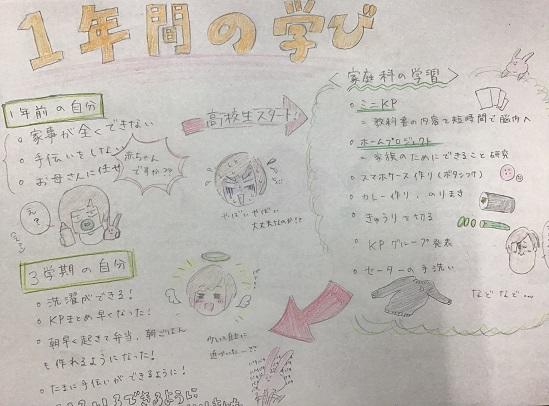 1年間の学び
1年前の自分
家事が全くできない
手伝いをしない
お母さんに任せ
赤ちゃん
ですか??
え?
高校生スタート!
やばいやばい
3学期の自分
洗濯ができる!
KPまとめ早くなった!
朝早く起きて弁当、朝ごはん
も作れるようになった!
たまに手伝いができるように!
家庭科の学習
ミニKP
→教科書の内容を短時間で脳内へ
ホームプロジェクト
→家族のためにできること研究
スマホケース作り(ボタンつけ)
カレー作り、のりまき
きゅうりを切る
KPグループ発表
セーターの手洗い
などなど…